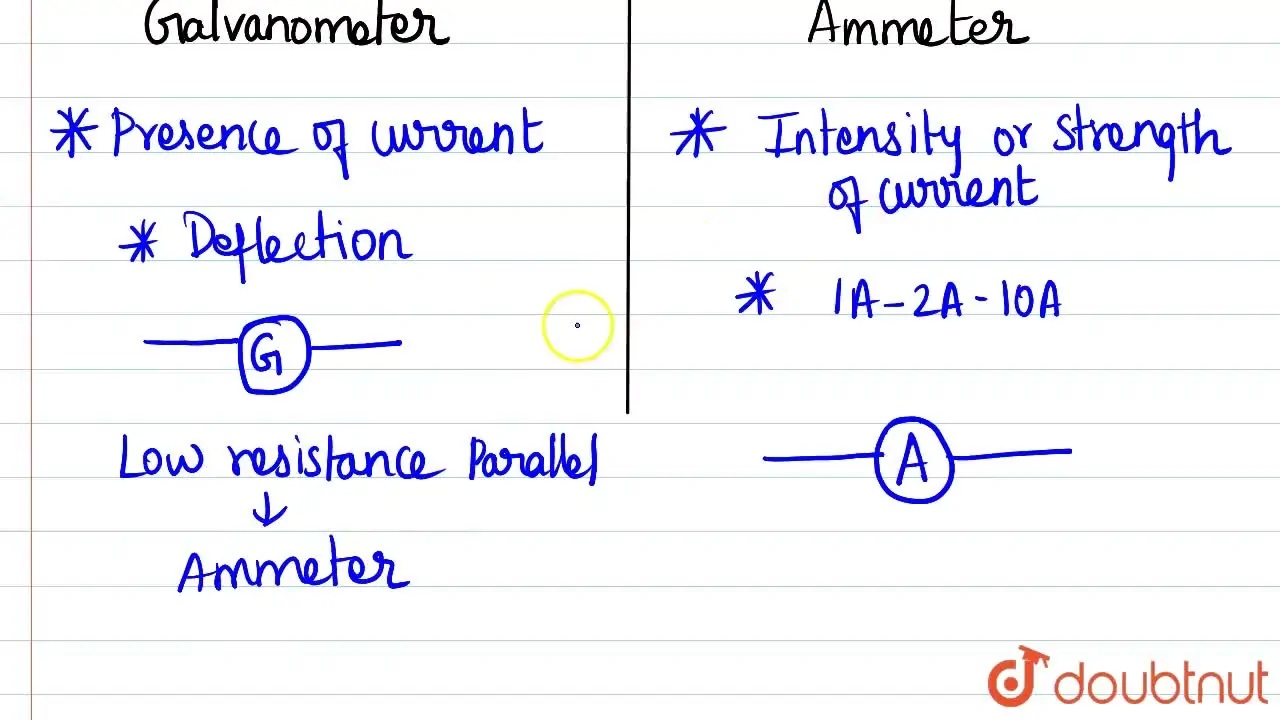 Galvanometer
* Presence of current
* Deflection
G
Low resistance Parallel
↓
Ammeter
Ammeter
* Intensity or strength
of current
* 1A-2A-10A
A
doubtnut